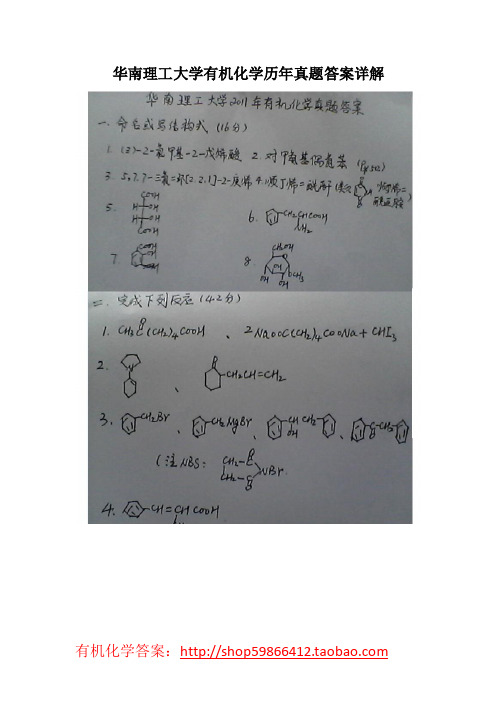 华南理工大学有机化学历年真题答案详解
华南理工大学2011年有机化学真题答案
一、命名或写结构式 (16分)
1. (Z)-2-氯甲基-2-戊烯酸 2. 对甲氨基偶氮苯 (P
3. 5,7,7-三氯二环[2.2.1]-2-庚烯 4. 顺丁烯二酸酐
5. COOH
H OH
H OH
COOH
6. CH2CHCOOH
NH2
7. COOH
COOH
8. CH2OH
OH
OCH3
OH
OH
二、完成下列反应 (42分)
1. CH3C(CH2)4COOH 、 2NaOOC(CH2)4COONa + CHI3
O
2. N 、 O CH2CH=CH2
3. CH2Br 、 CH2MgBr 、 CH CH2 、 C-CH2
OH O
(注NBS: CH2-C NBr
CH2-C
4. CH=CHCOOH
有机化学答案：http://shop59866412.taobao.com